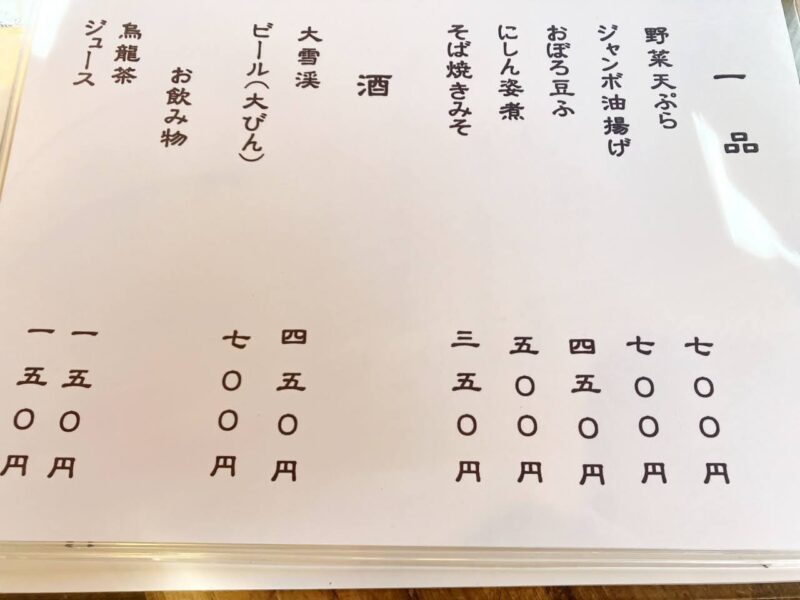 一品
野菜天ぷら 七〇〇円
ジャンボ油揚げ 七〇〇円
おぼろ豆ふ 四五〇円
にしん姿煮 五〇〇円
そば焼きみそ 三五〇円
酒
大雪渓 四五〇円
ビール(大びん) 七〇〇円
お飲み物
烏龍茶 一五〇円
ジュース 一五〇円